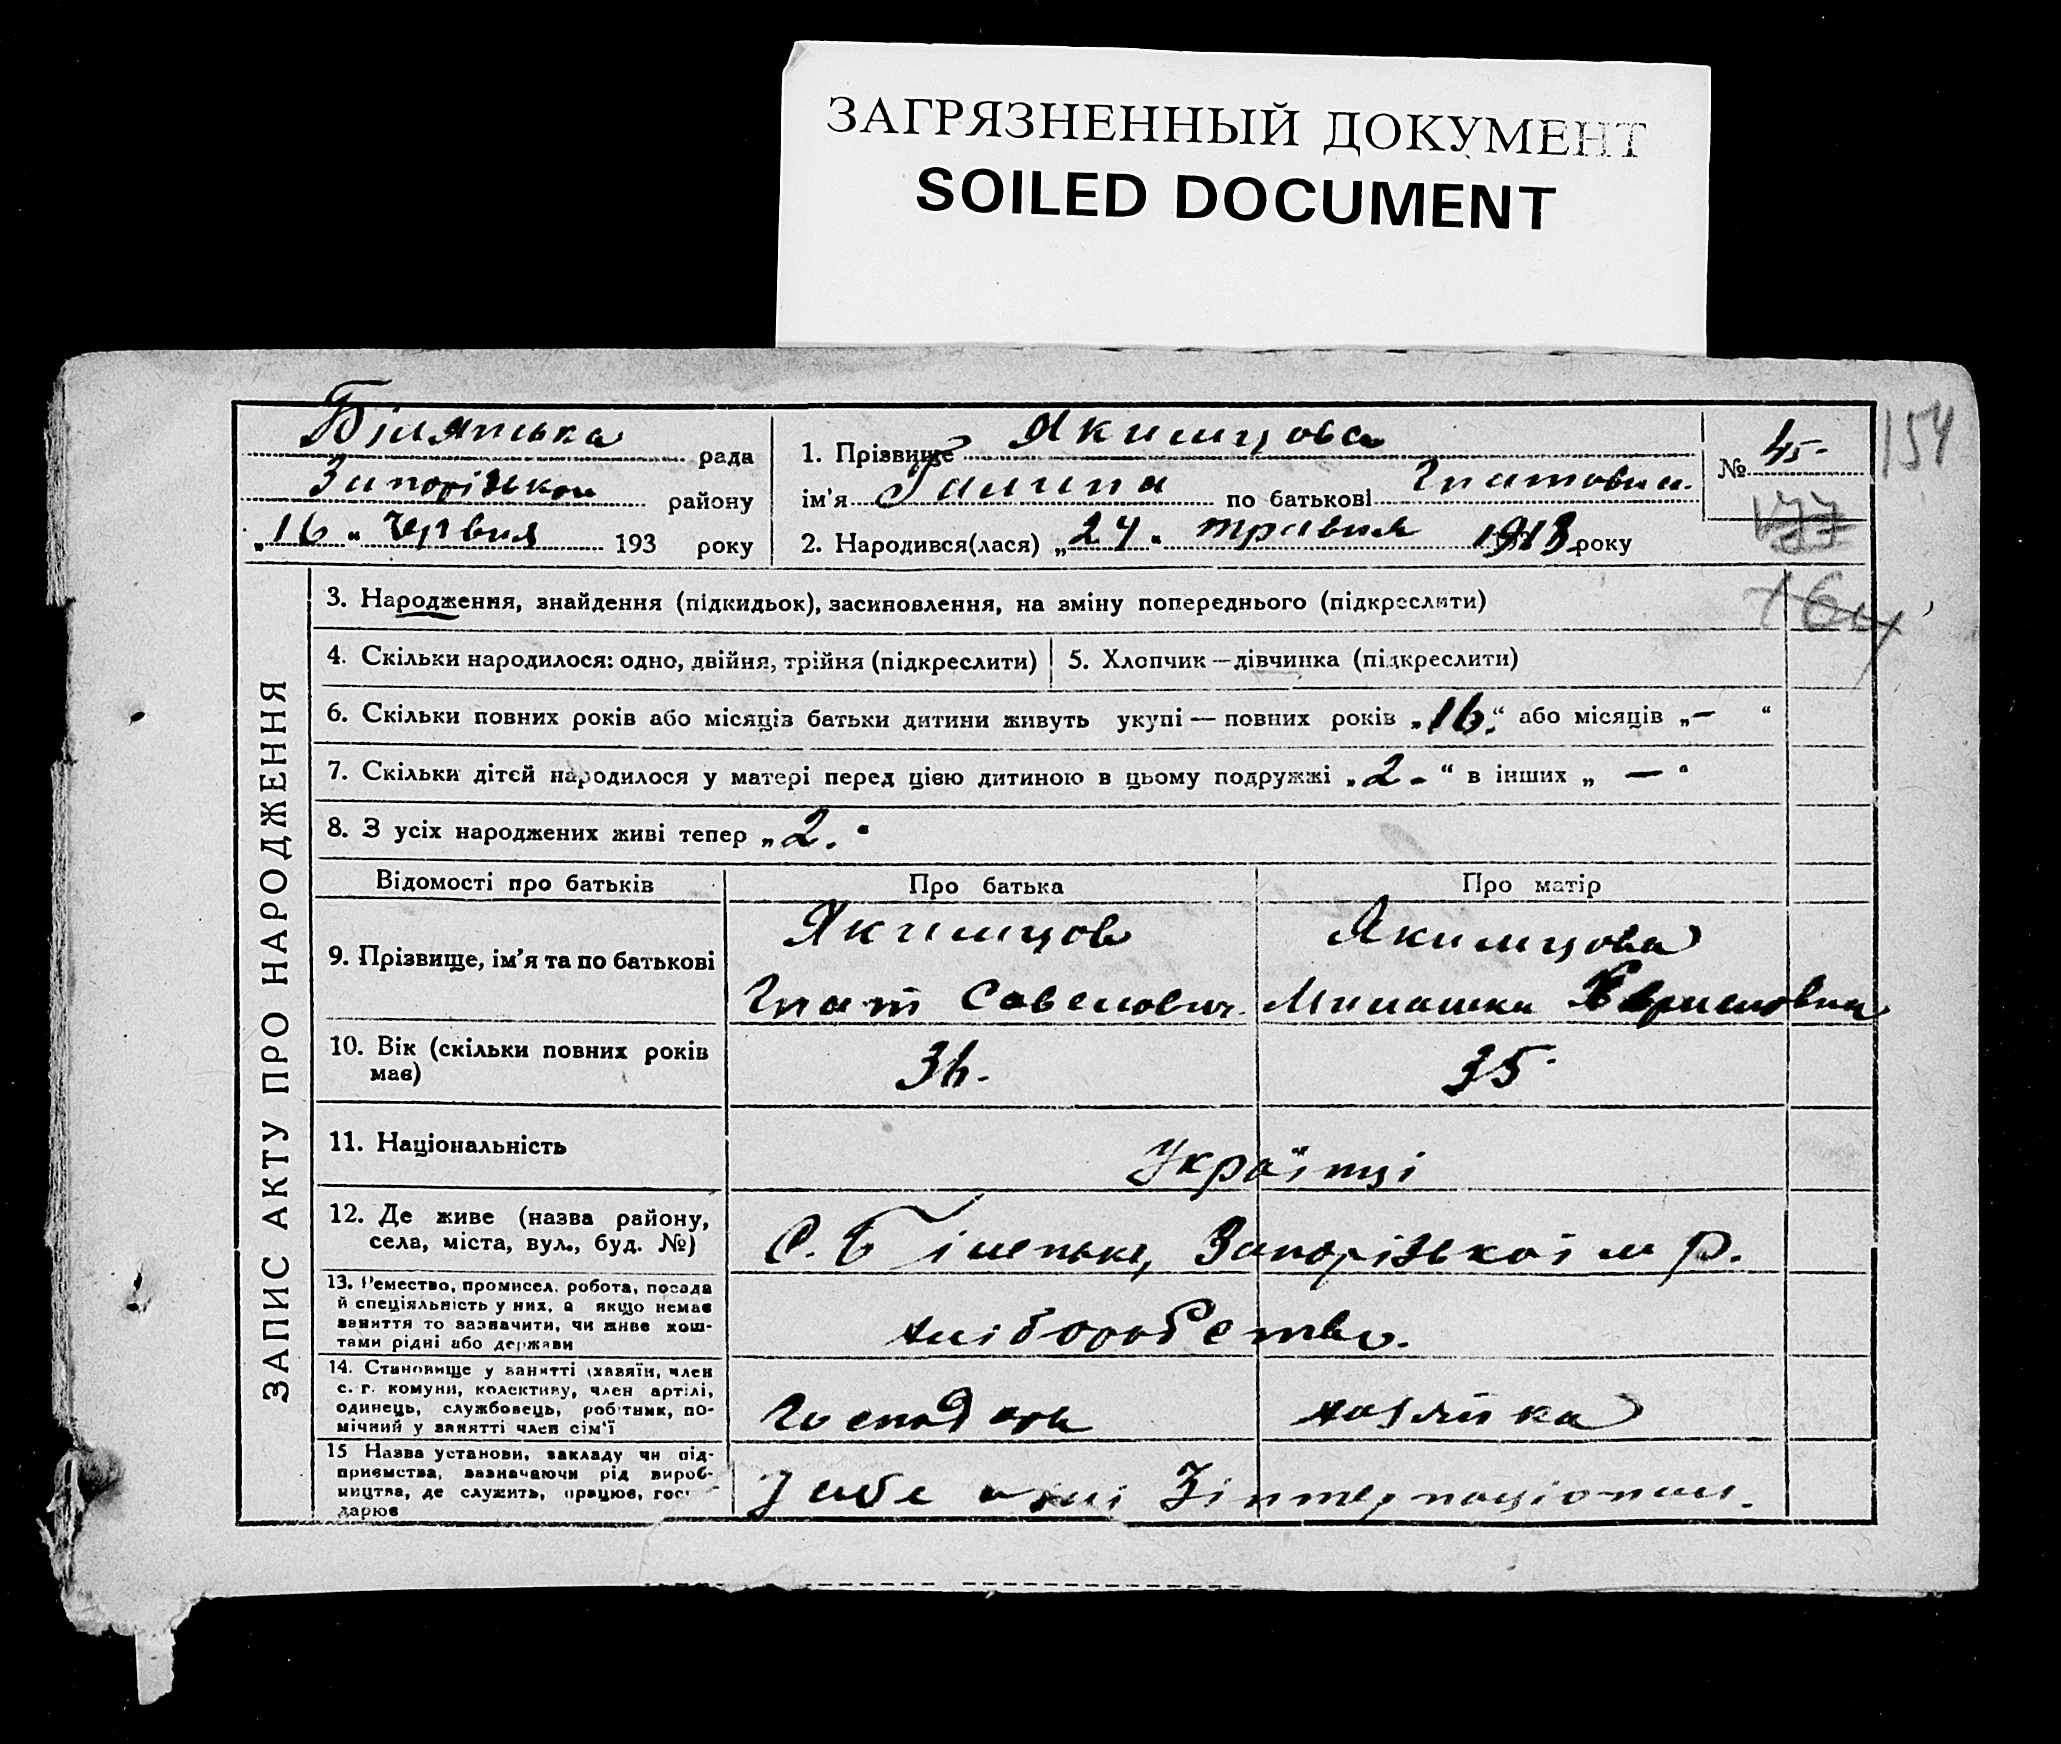 ЗАГРЯЗНЕННЫЙ ДОКУМЕНТ
SOILED DOCUMENT
рада
Запорізькою району
„16" Червня 193 року
1. Прізвище Якимцова
ім'я Галина по батькові Гнатовна.
2. Народився(лася) „24" травня 1913 року
№ 45-
154
177
164
ЗАПИС АКТУ ПРО НАРОДЖЕННЯ
3. Народження, знайдення (підкидьок), засиновлення, на зміну попереднього (підкреслити)
4. Скільки народилося: одно, двійня, трійня (підкреслити)
5. Хлопчик—дівчинка (підкреслити)
6. Скільки повних років або місяців батьки дитини живуть укупі — повних років „16." або місяців „—"
7. Скільки дітей народилося у матері перед цією дитиною в цьому подружжі „2-" в інших „—"
8. З усіх народжених живі тепер „2."
Відомості про батьків
Про батька
Про матір
9. Прізвище, ім'я та по батькові
Якимцов
Гнат Савелович.
Якимцова
10. Вік (скільки повних років має)
36.
35.
11. Національність
Українці
12. Де живе (назва району, села, міста, вул., буд. №)
С. Біленьке, Запорізької м р.
13. Ремество, промисел, робота, посада й спеціяльність у них, а якщо немає заняття то зазначити, чи живе коштами рідні або держави
хліборобство.
14. Становище у занятті (хазяїн, член с. г. комуни, колективу, член артілі, одинець, службовець, робітник, помічний у занятті член сім'ї
Господарь
хазяйка
15 Назва установи, закладу чи підприємства, зазначаючи рід виробництва, де служить, працює, гос
дарює